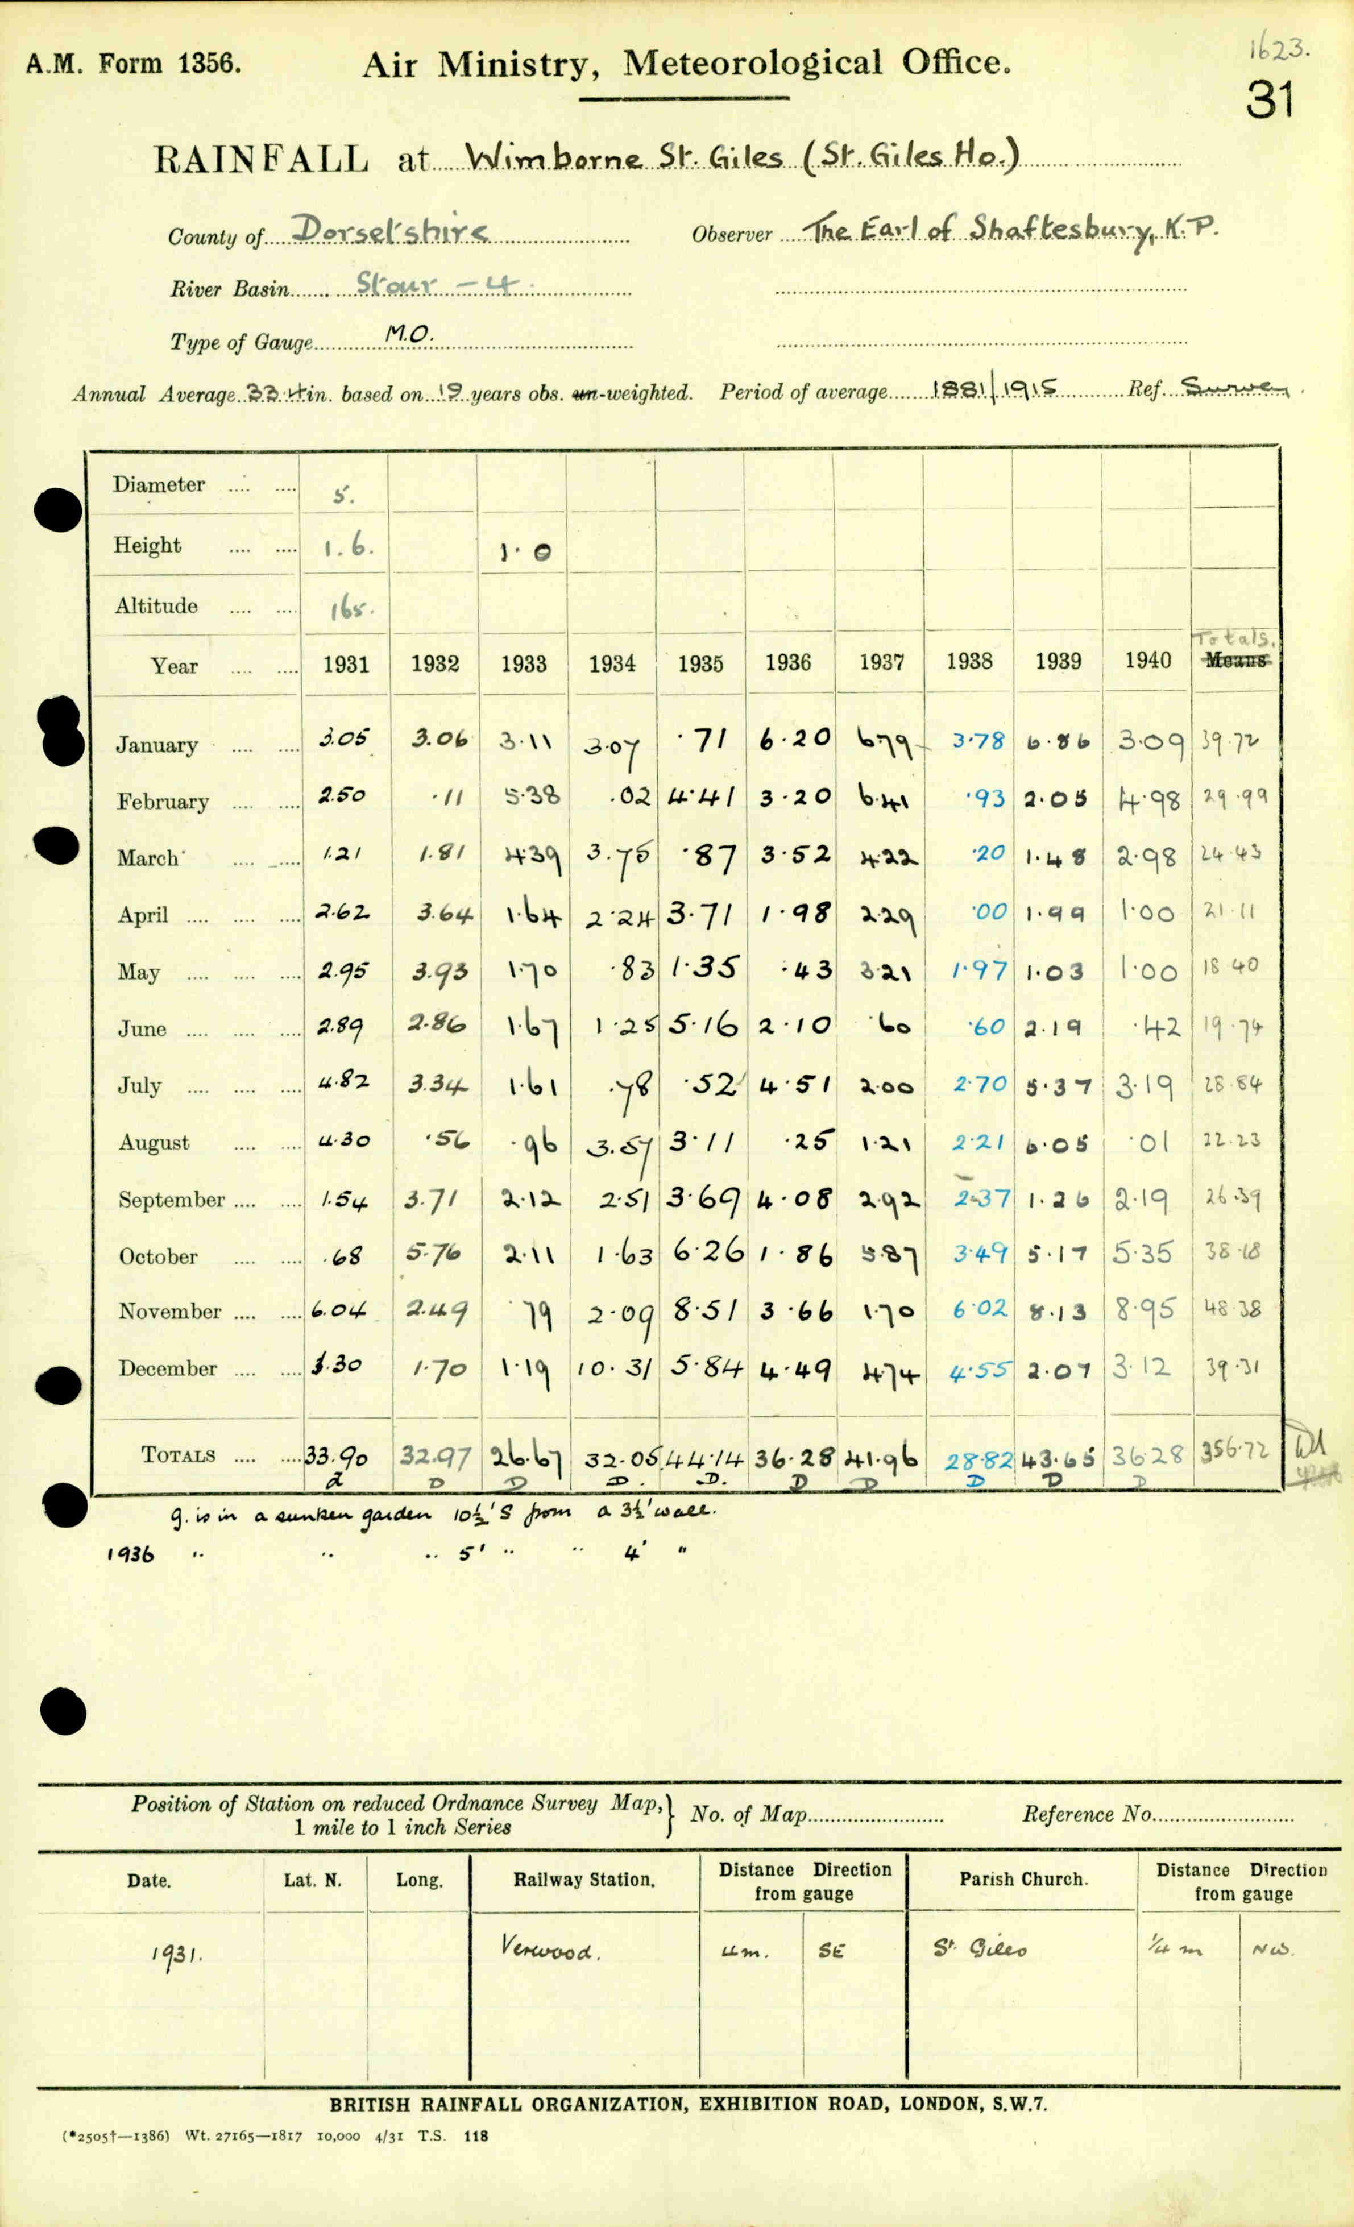 1623.
A.M. Form 1356. Air Ministry, Meteorological Office. 31
RAINFALL at Wimborne St. Giles (St. Giles Ho.)
County of Dorsetshire Observer The Earl of Shaftesbury, K.P.
River Basin Stour - 4
Type of Gauge M.O.
Annual Average 33.4 in. based on 19 years obs. un-weighted. Period of average 1881/1915 Ref. Survey.
Diameter 5.
Height 1.6. 1.0
Altitude 165.
Totals.
Year 1931 1932 1933 1934 1935 1936 1937 1938 1939 1940 Means
January 3.05 3.06 3.11 3.07 .71 6.20 6.79 3.78 6.86 3.09 39.72
February 2.50 .11 5.38 .02 4.41 3.20 6.41 .93 2.05 4.98 29.99
March 1.21 1.81 4.39 3.75 .87 3.52 4.22 .20 1.48 2.98 24.43
April 2.62 3.64 1.64 2.24 3.71 1.98 2.29 .00 1.99 1.00 21.11
May 2.95 3.93 1.70 .83 1.35 .43 3.21 1.97 1.03 1.00 18.40
June 2.89 2.86 1.67 1.25 5.16 2.10 .60 .60 2.19 .42 19.74
July 4.82 3.34 1.61 .78 .52 4.51 2.00 2.70 5.37 3.19 28.84
August 4.30 .56 .96 3.57 3.11 .25 1.21 2.21 6.05 .01 22.23
September 1.54 3.71 2.12 2.51 3.69 4.08 2.92 2.37 1.26 2.19 26.39
October .68 5.76 2.11 1.63 6.26 1.86 5.87 3.49 5.17 5.35 38.18
November 6.04 2.49 .79 2.09 8.51 3.66 1.70 6.02 8.13 8.95 48.38
December 1.30 1.70 1.19 10.31 5.84 4.49 4.74 4.55 2.07 3.12 39.31
TOTALS 33.90 32.97 26.67 32.05 44.14 36.28 41.96 28.82 43.65 36.28 356.72
d D D D. D. D D D D D
g. is in a sunken garden 10½' S from a 3½' wall.
1936 " " " 5' " " 4' "
Position of Station on reduced Ordnance Survey Map,} No. of Map Reference No.
1 mile to 1 inch Series
Date. Lat. N. Long. Railway Station. Distance Direction from gauge Parish Church. Distance Direction from gauge
1931. Verwood. 4m. SE St. Giles ¼ m NW.
BRITISH RAINFALL ORGANIZATION, EXHIBITION ROAD, LONDON, S.W.7.
(*2505†—1386) Wt. 27165—1817 10,000 4/31 T.S. 118